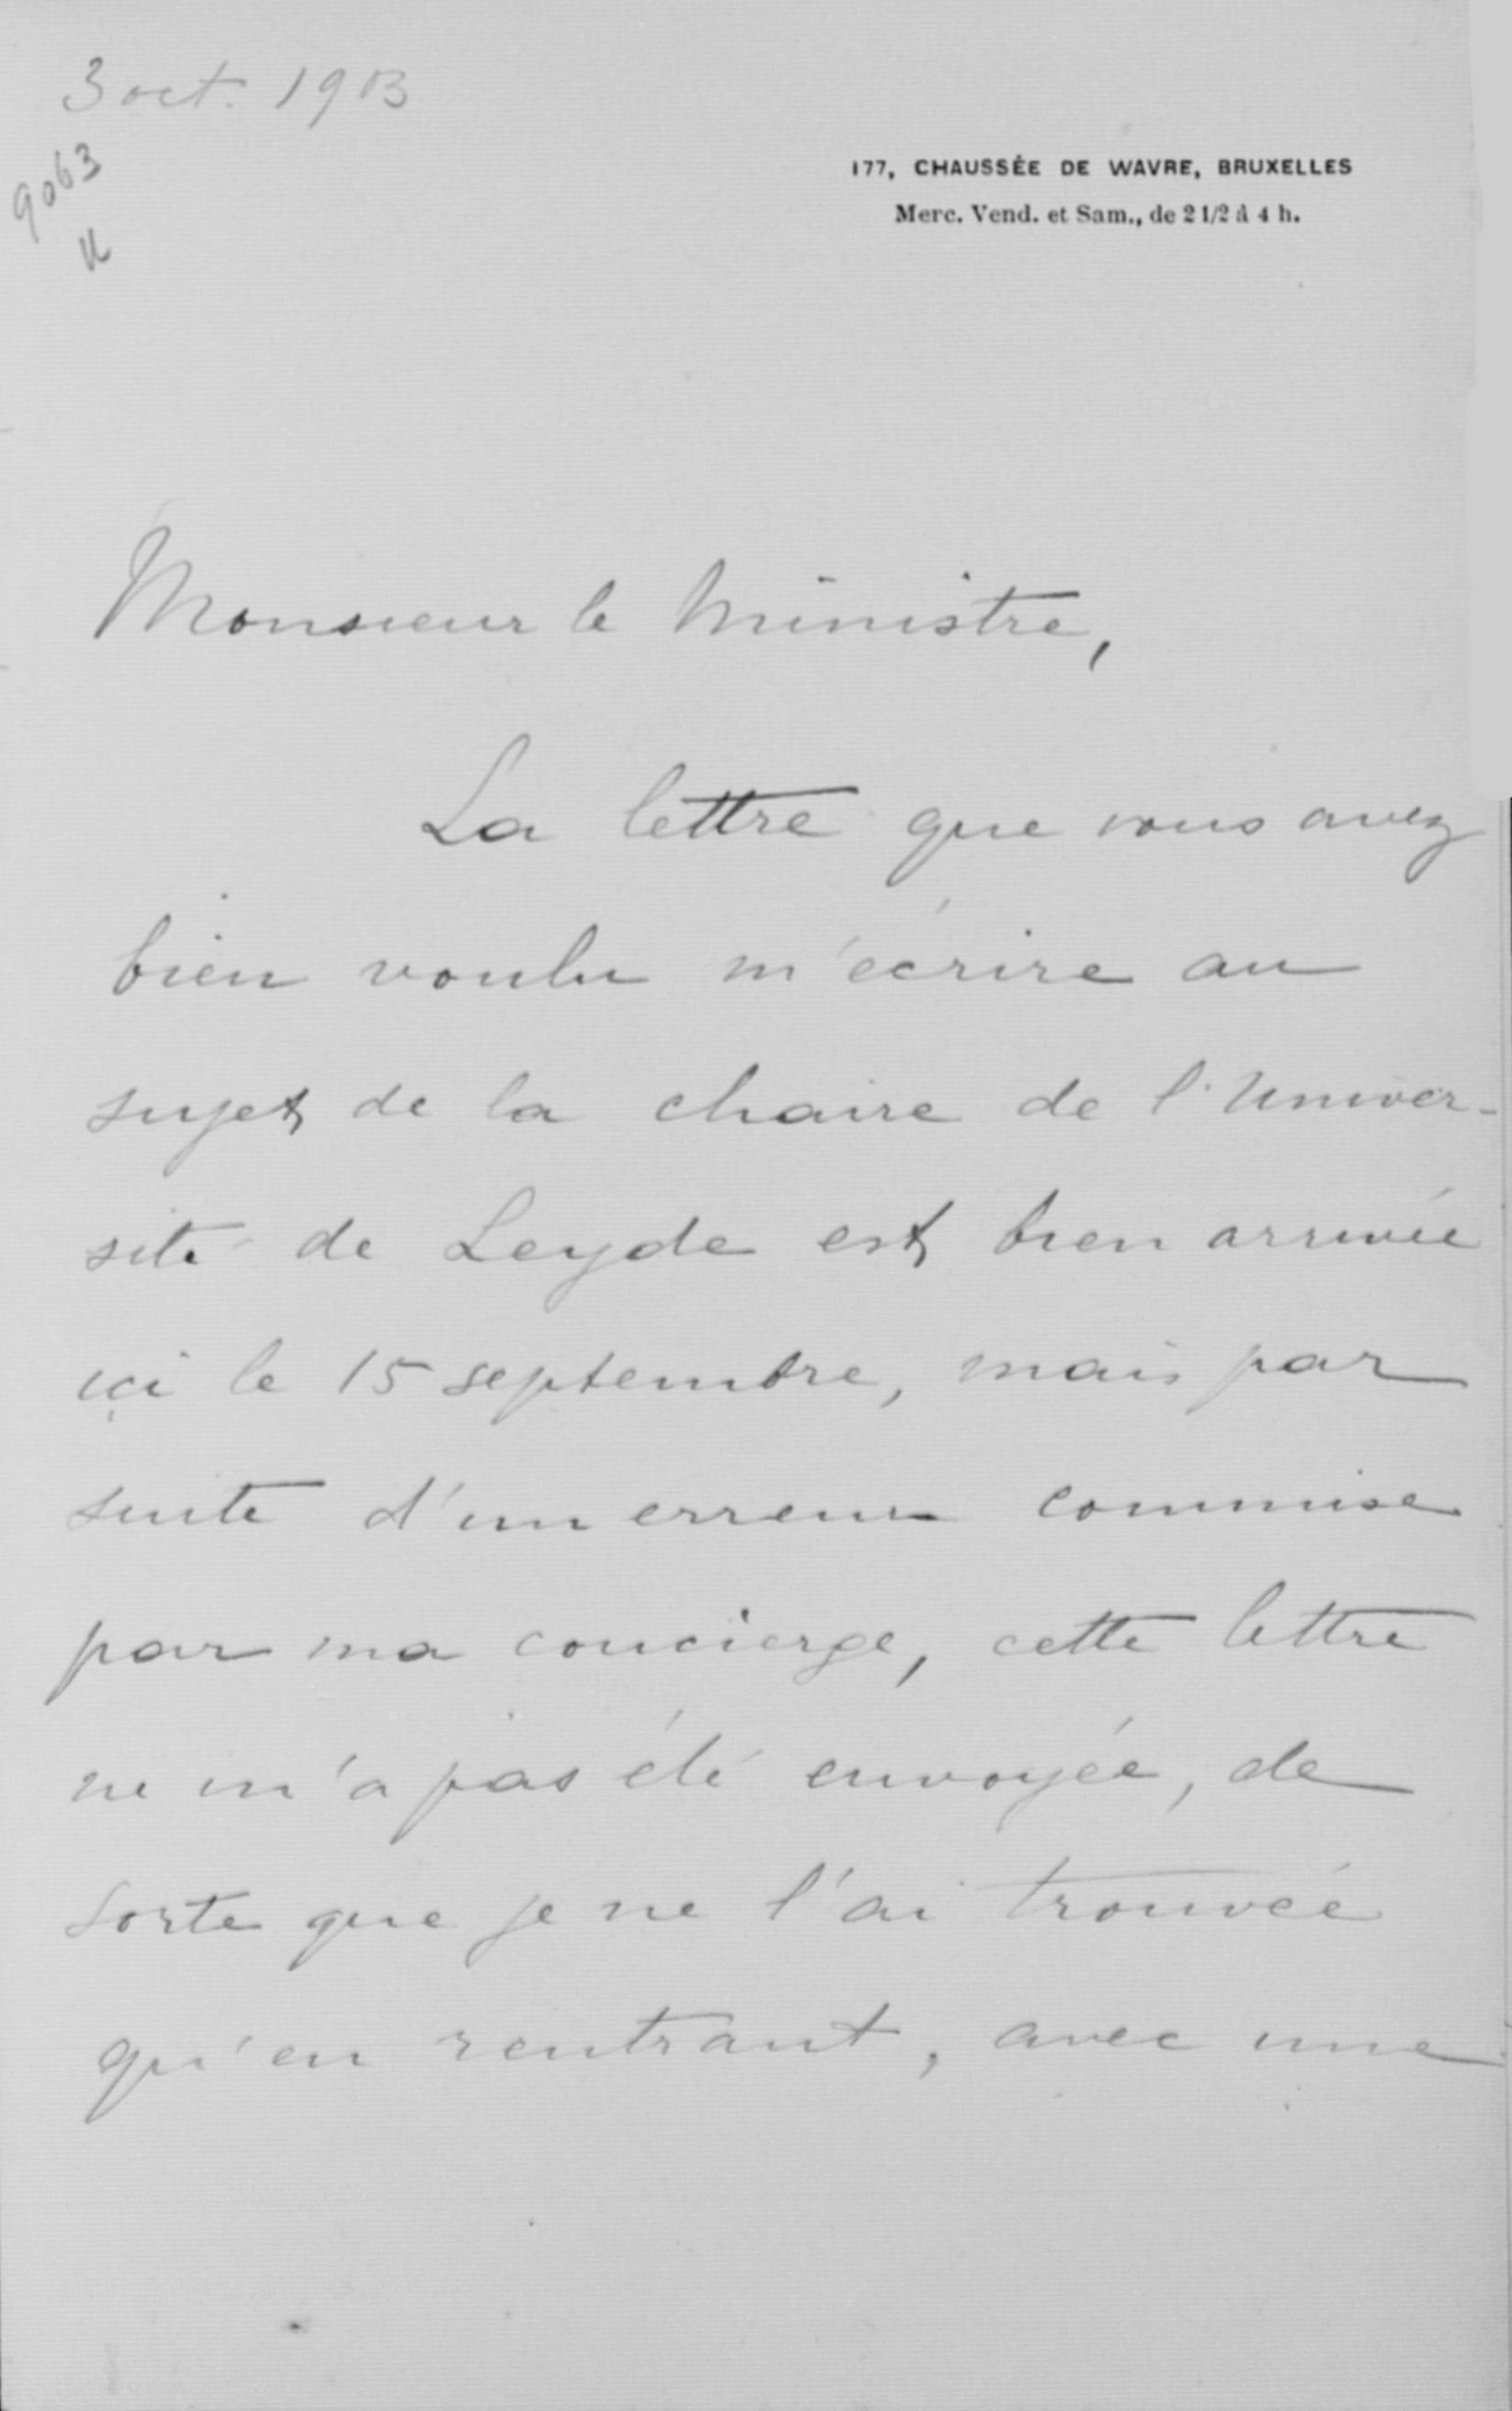 3 oct. 1903
9063
177, CHAUSSÉE DE WAVRE, BRUXELLES
Merc. Vend. et Sam., de 2 1/2 à 4 h.
Monsieur le Ministre,
La lettre que vous avez
bien voulu m'écrire au
sujet de la chaire de l'Univer-
sité de Leyde est bien arrivée
içi le 15 septembre, mais par
suite d'un erreur commise
par ma concierge, cette lettre
ne m'a pas été envoyée, de
sorte que je ne l'ai trouvée
qu'en rentrant, avec une